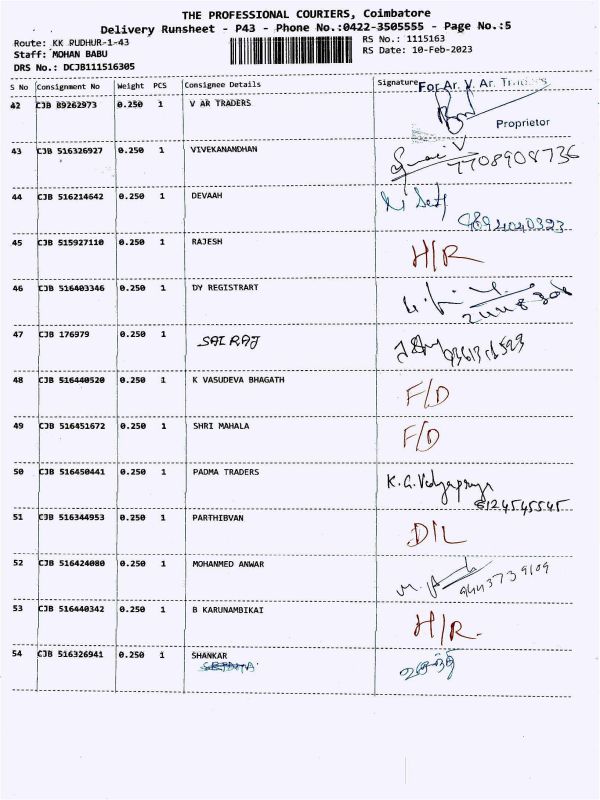 THE PROFESSIONAL COURIERS, Coimbatore
Delivery Runsheet - P43 - Phone No.:0422-3505555 - Page No.:5
Route: KK PUDHUR-1-43 RS No.: 1115163
Staff: MOHAN BABU RS Date: 10-Feb-2023
DRS No.: DCJB111516305
S No Consignment No Weight PCS Consignee Details Signature
For Ar. V. Ar. Traders
42 CJB 89262973 0.250 1 V AR TRADERS
Proprietor
43 CJB 516326927 0.250 1 VIVEKANANDHAN
7708908736
44 CJB 516214642 0.250 1 DEVAAH
9894040323
45 CJB 515927110 0.250 1 RAJESH H/R
46 CJB 516403346 0.250 1 DY REGISTRART
47 CJB 176979 0.250 1 SAI RAJ
48 CJB 516440520 0.250 1 K VASUDEVA BHAGATH F/D
49 CJB 516451672 0.250 1 SHRI MAHALA F/D
50 CJB 516450441 0.250 1 PADMA TRADERS K.G.Vidyapraya
8124545545
51 CJB 516344953 0.250 1 PARTHIBVAN D/L
52 CJB 516424080 0.250 1 MOHANMED ANWAR
9443739109
53 CJB 516440342 0.250 1 B KARUNAMBIKAI H/R.
54 CJB 516326941 0.250 1 SHANKAR